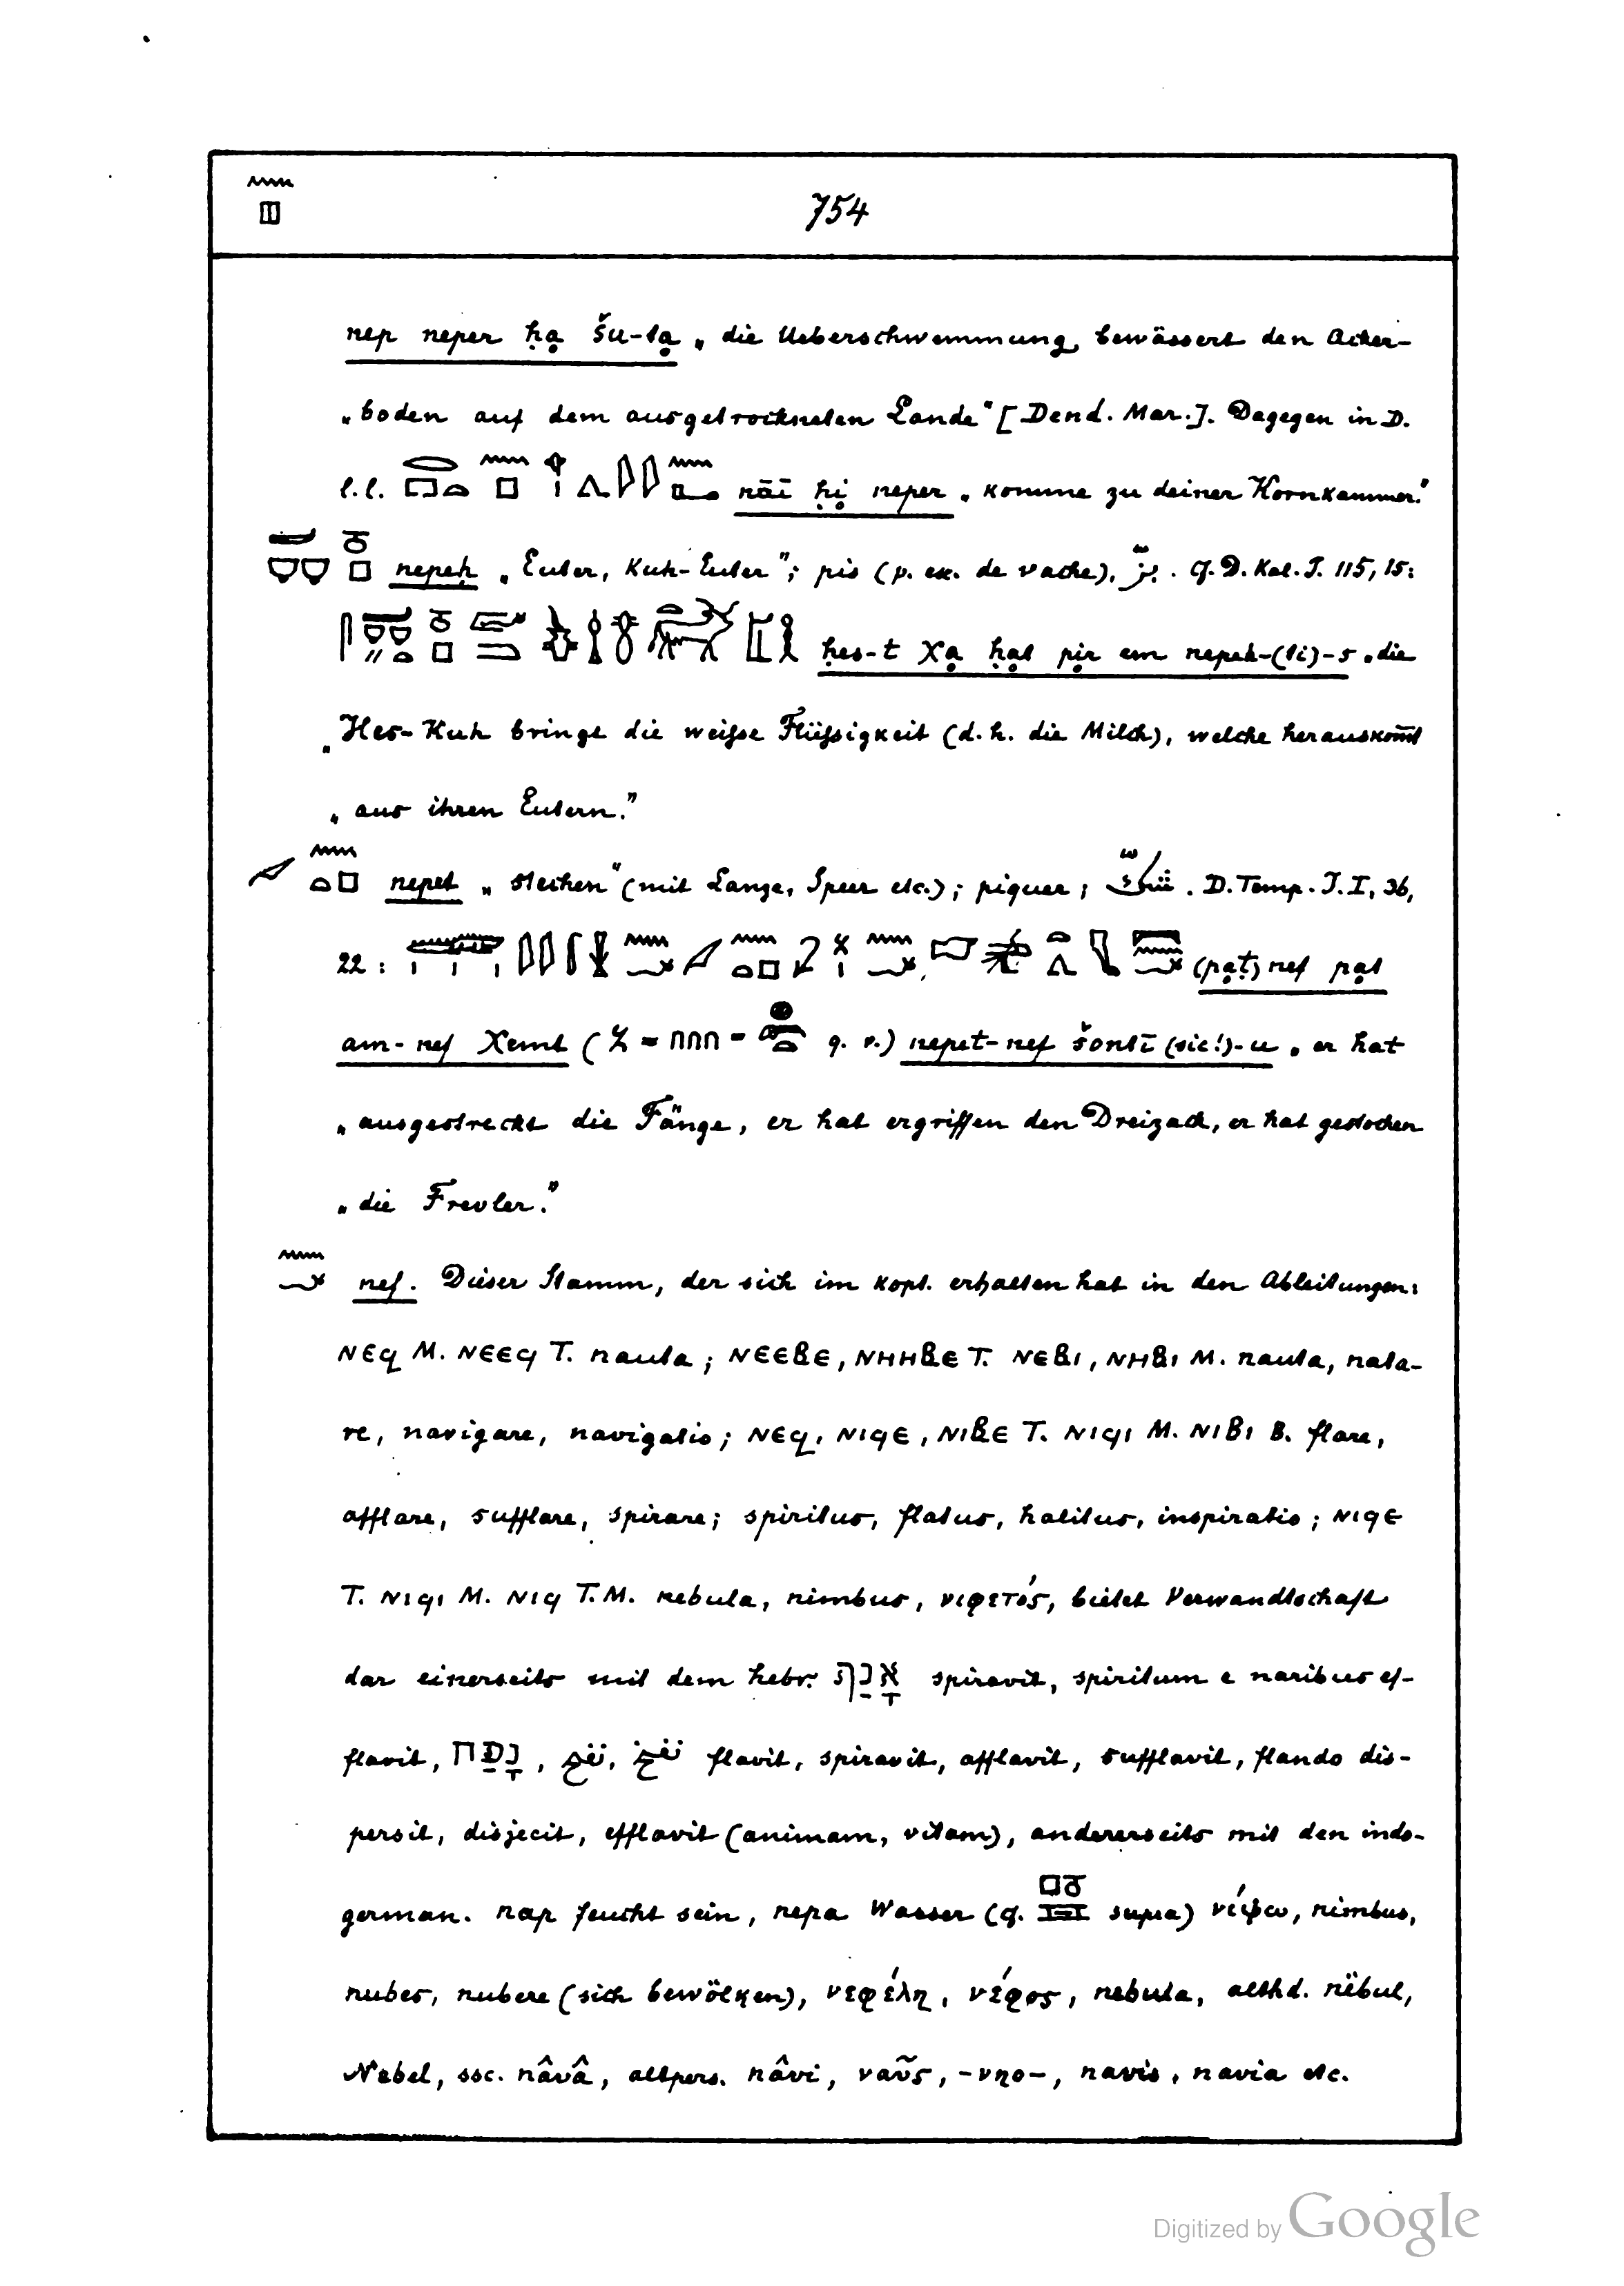 754
nep neper ḥa̤ šu-ta̤ „die Ueberschwemmung, bewässert den Acker-
„boden auf dem ausgetrockneten Lande“ [Dend. Mar.]. Dagegen in D.
l.l. nāī ḥi̤ neper „komme zu deiner Kornkammer.“
nepeḥ „Euter, Kuh-Euter“; pis (p. ex. de vache), بز. cf. D. Kal. I. 115, 15:
ḥes-t χa̤ ḥa̤t pi̤r em nepeh-(ti)-s „die
„Hes-Kuh bringt die weiſse Flüſsigkeit (d. h. die Milch), welche herauskom̅t
„aus ihren Eutern.“
nepet „stechen“ (mit Lanze, Speer etc.); piquer; . D. Temp. I. I, 36,
22: (pa̤ṭ) nef pa̤t
am-nef χemt ( = ∩∩∩ = q. v.) nepet-nef šontī (sic!)-u „er hat
„ausgestreckt die Fänge, er hat ergriffen den Dreizack, er hat gestochen
„die Frevler.“
nef. Dieser Stamm, der sich im kopt. erhalten hat in den Ableitungen:
ⲛⲉϥ M. ⲛⲉⲉϥ T. nauta; ⲛⲉⲉⲃⲉ, ⲛⲏⲏⲃⲉ T. ⲛⲉⲃⲓ, ⲛⲏⲃⲓ M. nauta, nata-
re, navigare, navigatio; ⲛⲉϥ, ⲛⲓϥⲉ, ⲛⲓⲃⲉ T. ⲛⲓϥⲓ M. ⲛⲓⲃⲓ B. flare,
afflare, sufflare, spirare; spiritus, flatus, halitus, inspiratio; ⲛⲓϥⲉ
T. ⲛⲓϥⲓ M. ⲛⲓϥ T.M. nebula, nimbus, νιφετός, bietet Verwandtschaft
dar einerseits mit dem hebr. אָנַף spiravit, spiritum e naribus ef-
flavit, נָפַח, نفح, نفخ flavit, spiravit, afflavit, sufflavit, flando dis-
persit, disjecit, efflavit (animam, vitam), andererseits mit den indo-
german. nap feucht sein, nepa Wasser (cf. supra) νίφω, nimbus,
nubes, nubere (sich bewölken), νεφέλη, νέφος, nebula, althd. nëbul,
Nebel, ssc. nâvâ, altpers. nâvi, ναῦς, -νηο-, navis, navia etc.
Digitized by Google